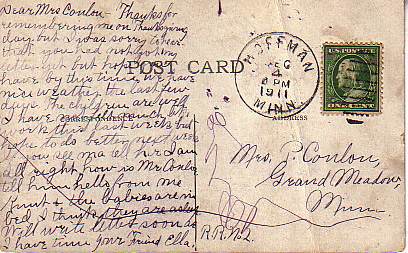 Dear Mrs Conlon - Thanks for
remembering me on Thanksgiving
day but I was sorry to hear
that you had not got my
letter yet but hope you
have by this time. we have
nice weather the last few
days. The children are well
I have not much
work this last weeks but
hope to do better next week
If you see ma tell her I am
all right how is Mr Conlon
tell him hello from me
Knut & the babies are in
bed I think they are asleep
Will write letter soon as
I have time Your Friend Ella,
POST CARD
CORRESPONDENCE
ADDRESS
HOFFMAN
DEC
4
PM
1911
MINN.
U.S. POSTAGE
ONE CENT
Mrs. P. Conlon,
Grand Meadow,
Minn.
R.R. No 2.